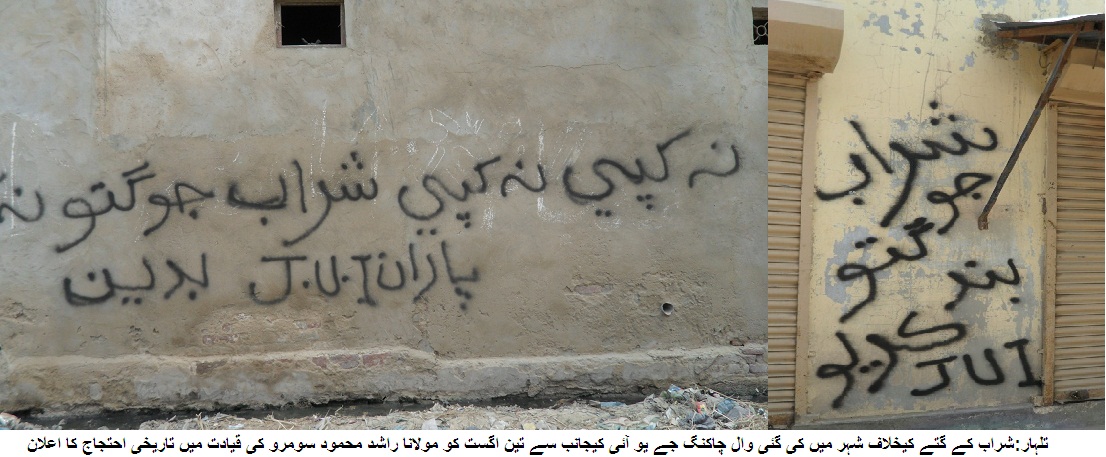 نہ کپي نہ کپي شراب جو گتو نہ
پاران J.U.I بدين
شراب
جو
گتو
بند
ڪريو
JUI
تلہار:شراب کے گتے کیخلاف شہر میں کی گئی وال چاکنگ جے یو آئی کیجانب سے تین اگست کو مولانا راشد محمود سومرو کی قیادت میں تاریخی احتجاج کا اعلان